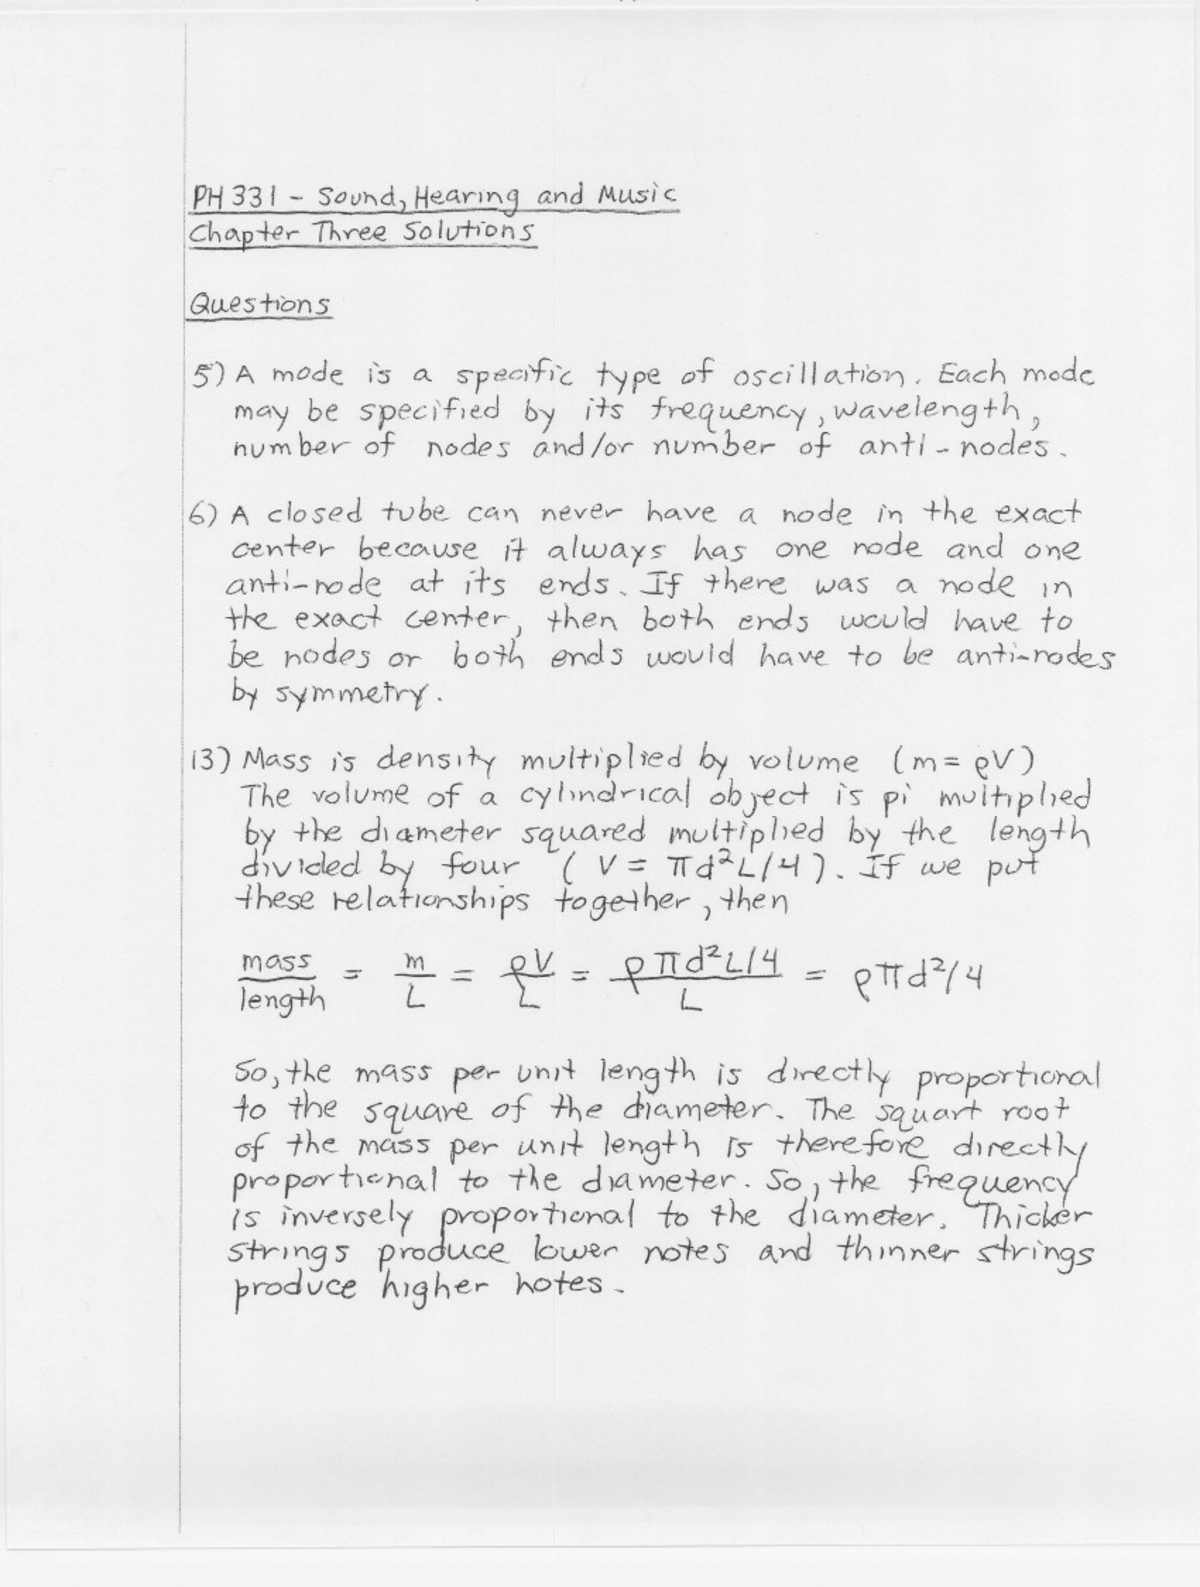 PH 331 - Sound, Hearing and Music
Chapter Three Solutions
Questions
5) A mode is a specific type of oscillation. Each mode
may be specified by its frequency, wavelength,
number of nodes and/or number of anti-nodes.
6) A closed tube can never have a node in the exact
center because it always has one node and one
anti-node at its ends. If there was a node in
the exact center, then both ends would have to
be nodes or both ends would have to be anti-nodes
by symmetry.
13) Mass is density multiplied by volume (m = ρV)
The volume of a cylindrical object is pi multiplied
by the diameter squared multiplied by the length
divided by four (V = πd²L/4). If we put
these relationships together, then
mass/length = m/L = ρV/L = ρπd²L/4/L = ρπd²/4
So, the mass per unit length is directly proportional
to the square of the diameter. The squart root
of the mass per unit length is therefore directly
proportional to the diameter. So, the frequency
is inversely proportional to the diameter. Thicker
strings produce lower notes and thinner strings
produce higher notes.